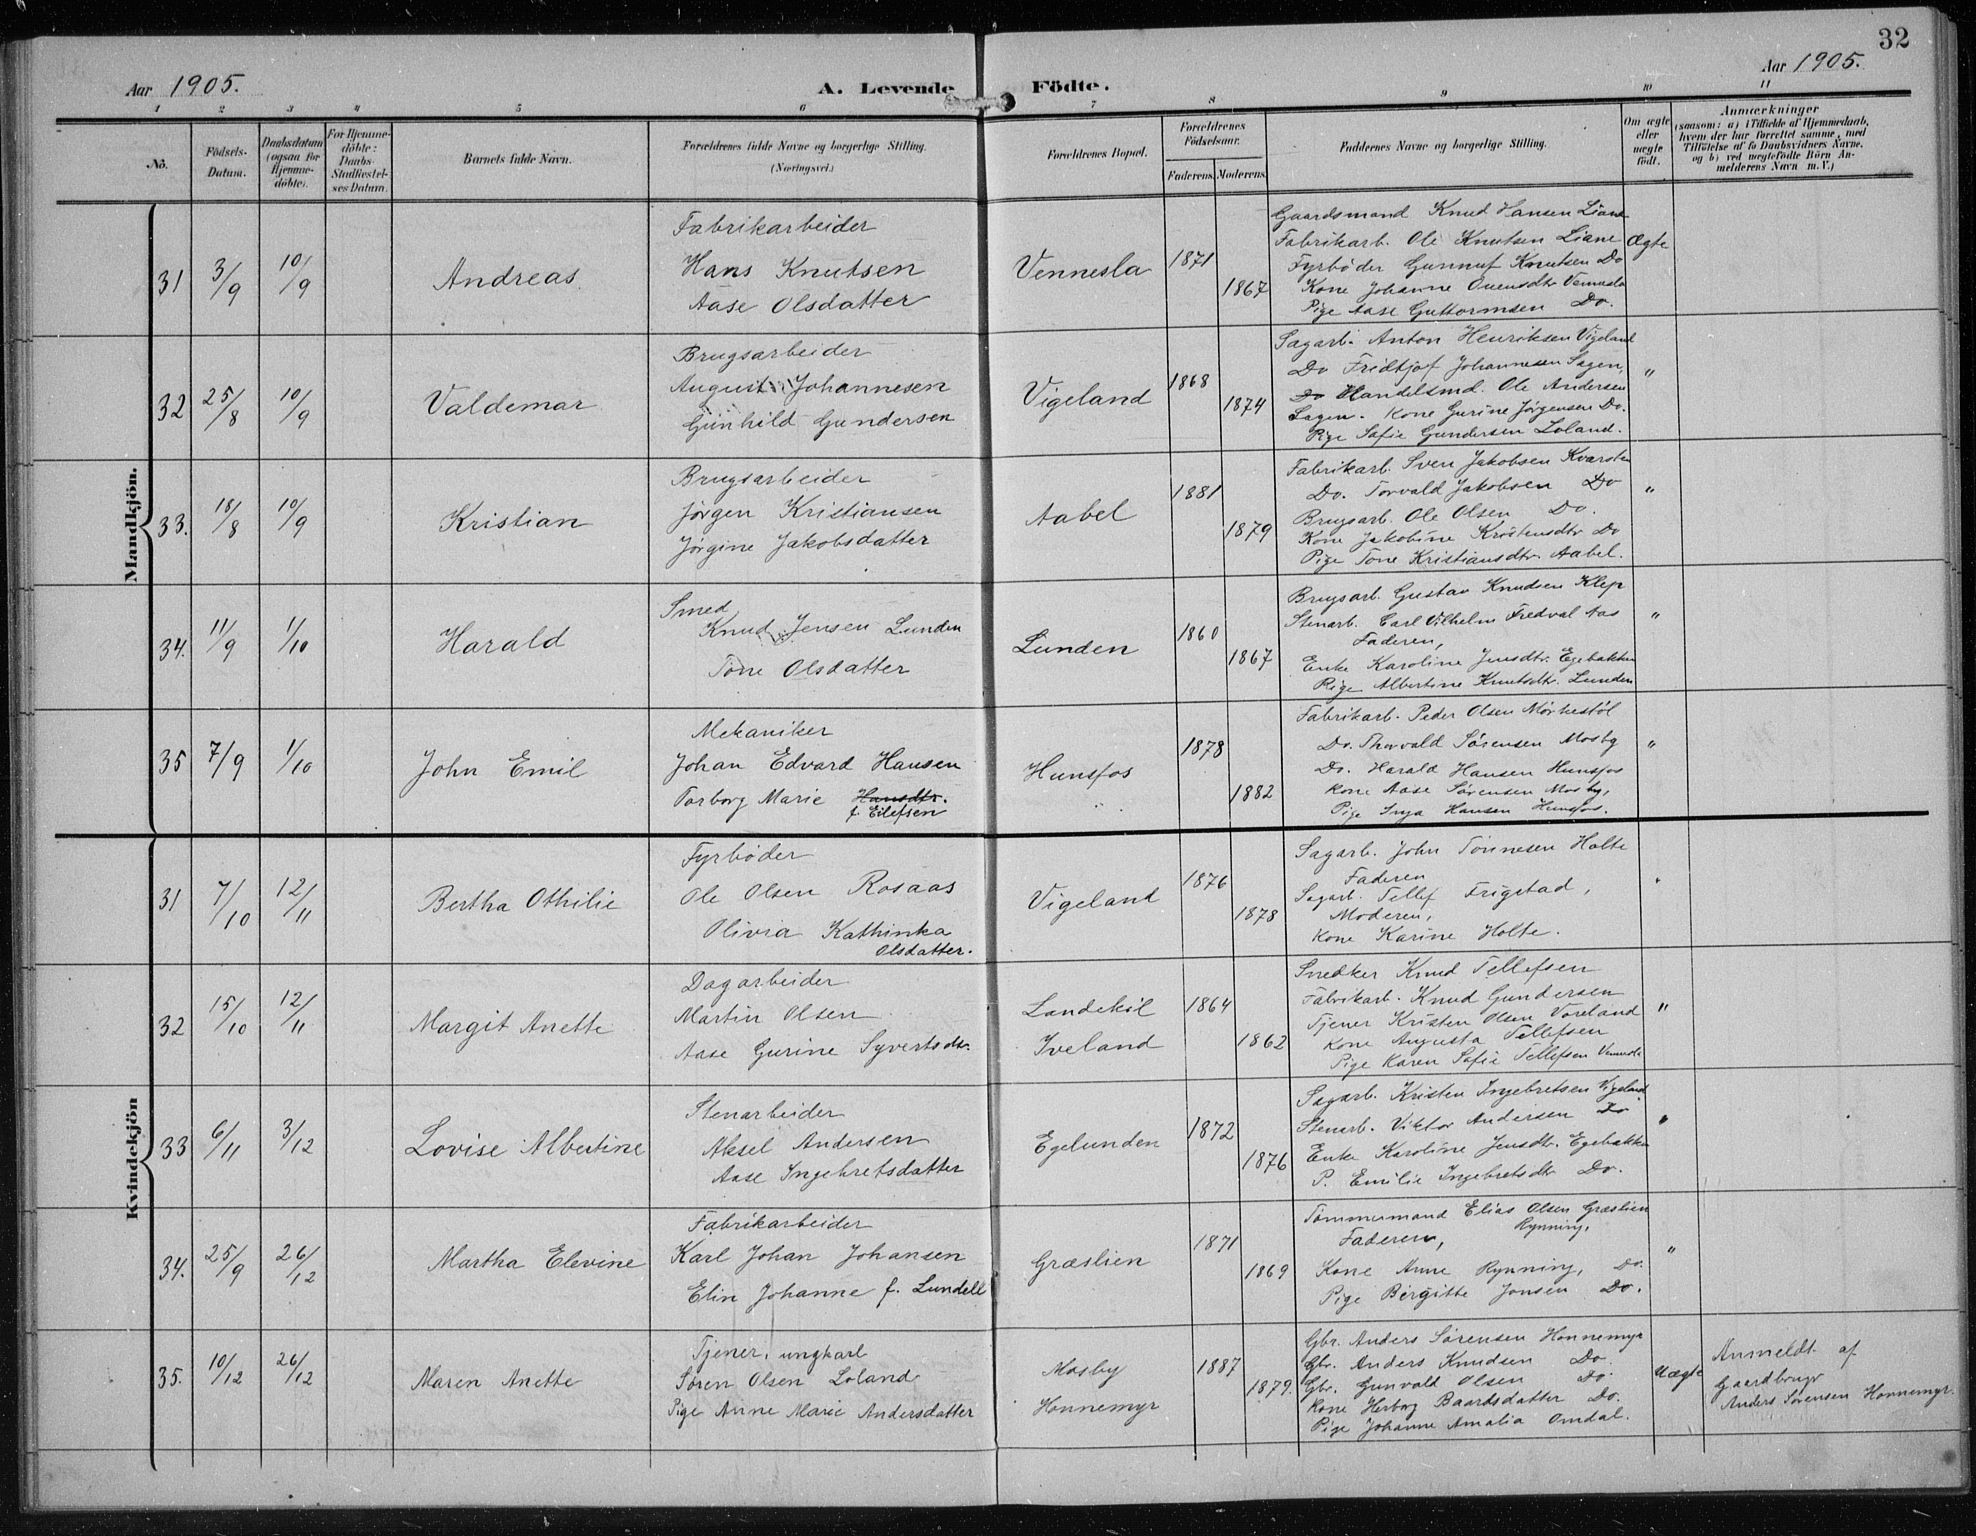 32
Aar 1905.
A. Levende Födte.
Aar 1905.
1 2 3 4 5 6 7 8 9 10 11
No.
Födsels-
Datum.
Daabsdatum
(ogsaa for
Hjemme-
döbte).
For Hjemme-
döbte:
Daabs-
Stadfæstel-
ses Datum.
Barnets fulde Navn.
Forældrenes fulde Navne og borgerlige Stilling.
(Næringsvei.)
Forældrenes Bopæl.
Forældrenes
Födselsaar.
Faderens. Moderens.
Faddernes Navne og borgerlige Stilling.
Om ægte
eller
uægte
födt.
Anmærkninger
(saasom: a) i Tilfælde af Hjemmedaab,
hvem der har forrettet samme, med
Tilföielse af to Daabsvidners Navne,
og b) ved uægtefödte Börn An-
melderens Navn m. V.)
Mandkjön.
31 3/9 10/9 Andreas
Fabrikarbeider
Hans Knutsen
Aase Olsdatter
Vennesla
1871
1867
Gaardsmand Knud Hansen Liane
Fabrikarb. Ole Knutsen Liane
Fyrbøder Gunnuf Knutsen Do
Kone Johanne Evensdtr Vennesla
Pige Aase Guttormsen Do.
Ægte
32 25/8 10/9 Valdemar
Brugsarbeider
August Johannesen
Gunhild Gundersen
Vigeland
1868
1874
Sagarb. Anton Henriksen Vigeland
Do Fridtjof Johannesen Sagen,
Do Handelsmd. Ole Andersen
Sagen. Kone Gurine Jørgensen Do.
Pige Sofie Gundersen Loland.
"
33. 18/8 10/9 Kristian
Brugsarbeider
Jørgen Kristiansen
Jørgine Jakobsdatter
Aabel
1881
1879
Fabrikarb. Sven Jakobsen Kvarsten
Do. Torvald Jakobsen Do
Brugsarb. Ole Olsen Do.
Kone Jakobine Kristensdtr Do
Pige Tone Kristiansdtr. Aabel.
"
34. 11/9 1/10 Harald
Smed
Knud Jensen Lunden
Tone Olsdatter
Lunden
1860
1867
Brugsarb. Gustav Knudsen Klep
Stenarb. Carl Vilhelm Fredval Aas
Faderen,
Enke Karoline Jensdtr. Egebakken
Pige Albertine Knutsdtr. Lunden
"
35 7/9 1/10 John Emil
Mekaniker
Johan Edvard Hansen
Torborg Marie Hansdtr.
f. Eilefsen
Hunsfos
1878
1882
Fabrikarb. Peder Olsen Mørkestøl
Do. Thorvald Sørensen Mosby
Do. Harald Hansen Hunsfos
Kone Aase Sørensen Mosby,
Pige Inga Hansen Hunsfos.
"
Kvindekjön
31 7/10 12/11 Bertha Othilie
Fyrbøder
Ole Olsen Rosaas
Olivia Kathinka
Olsdatter.
Vigeland
1876
1878
Sagarb. John Tønnesen Holte
Faderen
Sagarb. Tellef Frigstad,
Moderen,
Kone Karine Holte.
"
32 15/10 12/11 Margit Anette
Dagarbeider
Martin Olsen
Aase Gurine Syvertsdtr.
Landekil
Iveland
1864
1862
Snedker Knud Tellefsen
Fabrikarb. Knud Gundersen
Tjener Kristen Olsen Voreland
Kone Augusta Tellefsen
Pige Karen Sofie Tellefsen Vennesla
"
33 6/11 3/12 Lovise Albertine
Stenarbeider
Aksel Andersen
Aase Ingebretsdatter
Egelunden
1872
1876
Sagarb. Kristen Ingebretsen Vigeland
Stenarb. Viktor Andersen Do
Enke Karoline Jensdtr. Egebakken
P. Emilie Ingebretsdtr Do.
"
34. 25/9 26/12 Martha Elevine
Fabrikarbeider
Karl Johan Johansen
Elin Johanne f. Lundell
Græslien
1871
1869
Tømmermand Elias Olsen Græslien
Rynning,
Faderen,
Kone Anne Rynning, Do.
Pige Birgitte Jonsen Do.
"
35. 10/12 26/12 Maren Anette
Tjener, ungkarl
Søren Olsen Loland
Pige Anne Marie Andersdatter
Mosby
Honnemyr
1887
1879.
Gbr. Anders Sørensen Honnemyr
Gbr. Anders Knudsen Do.
Gbr. Gunvald Olsen Do.
Kone Herborg Baardsdatter Do.
Pige Johanne Amalia Omdal.
Uægte
Anmeldt af
Gaardbruger
Anders Sørensen Honnemyr.